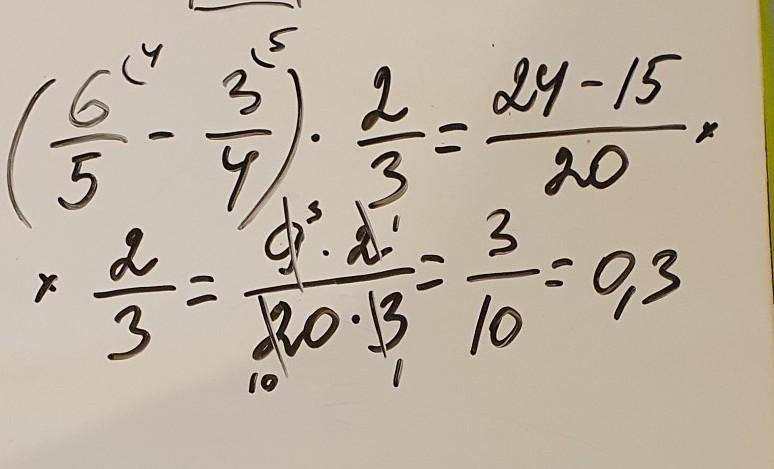 (6/5 (4 - 3/4 (5) · 2/3 = (24-15)/20 ×
× 2/3 = (9 3 · 2 1)/(20 10 · 3 1) = 3/10 = 0,3